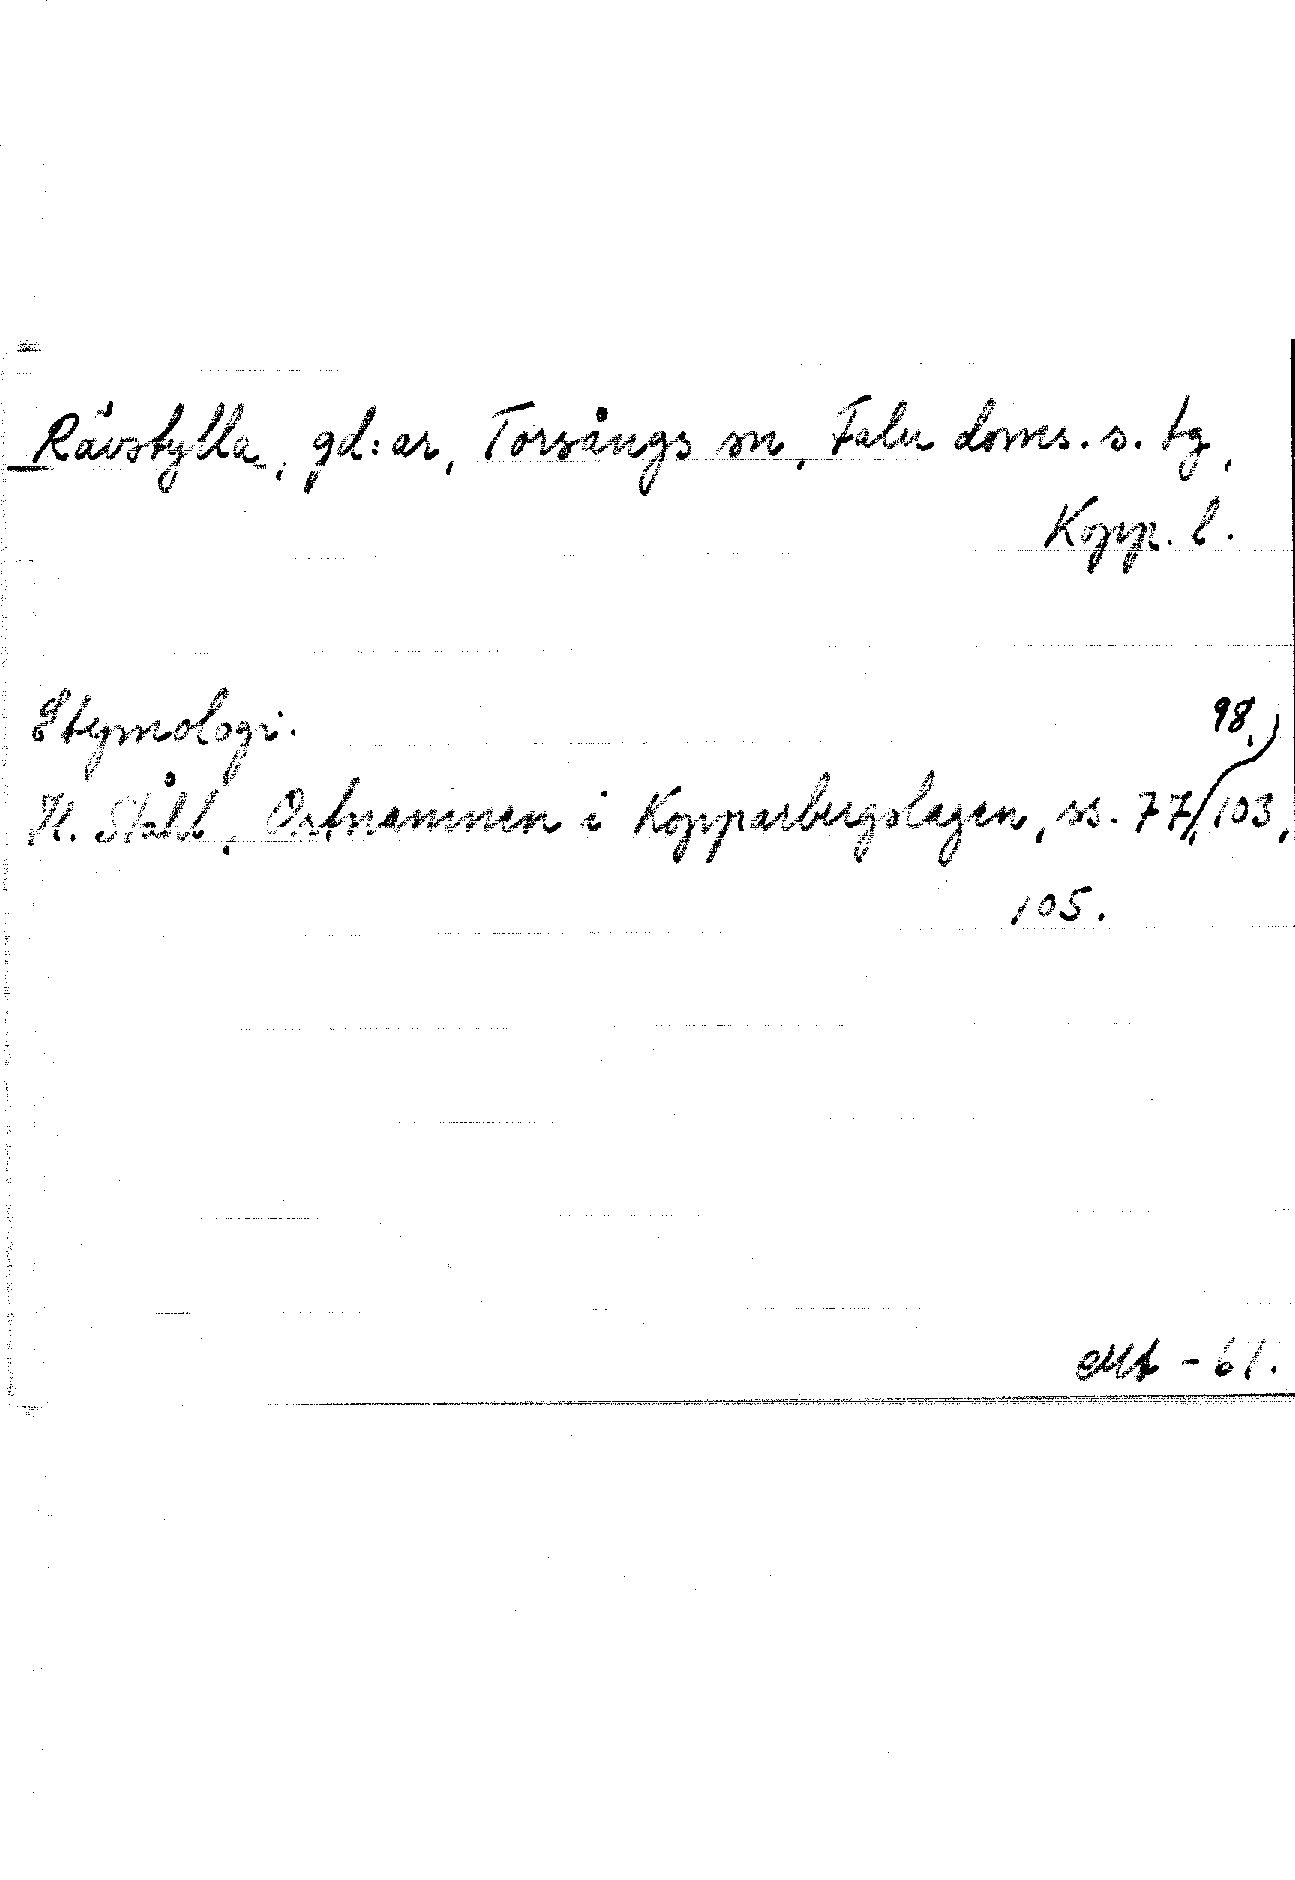 Rävstylla, gd:ar, Torsångs sn, Falu doms. s. tg,
Kopp. l.
Etymologi.
H. Ståhl, Ortnamnen i Kopparbergslagen, ss. 77, 98, 103,
105.
-61.